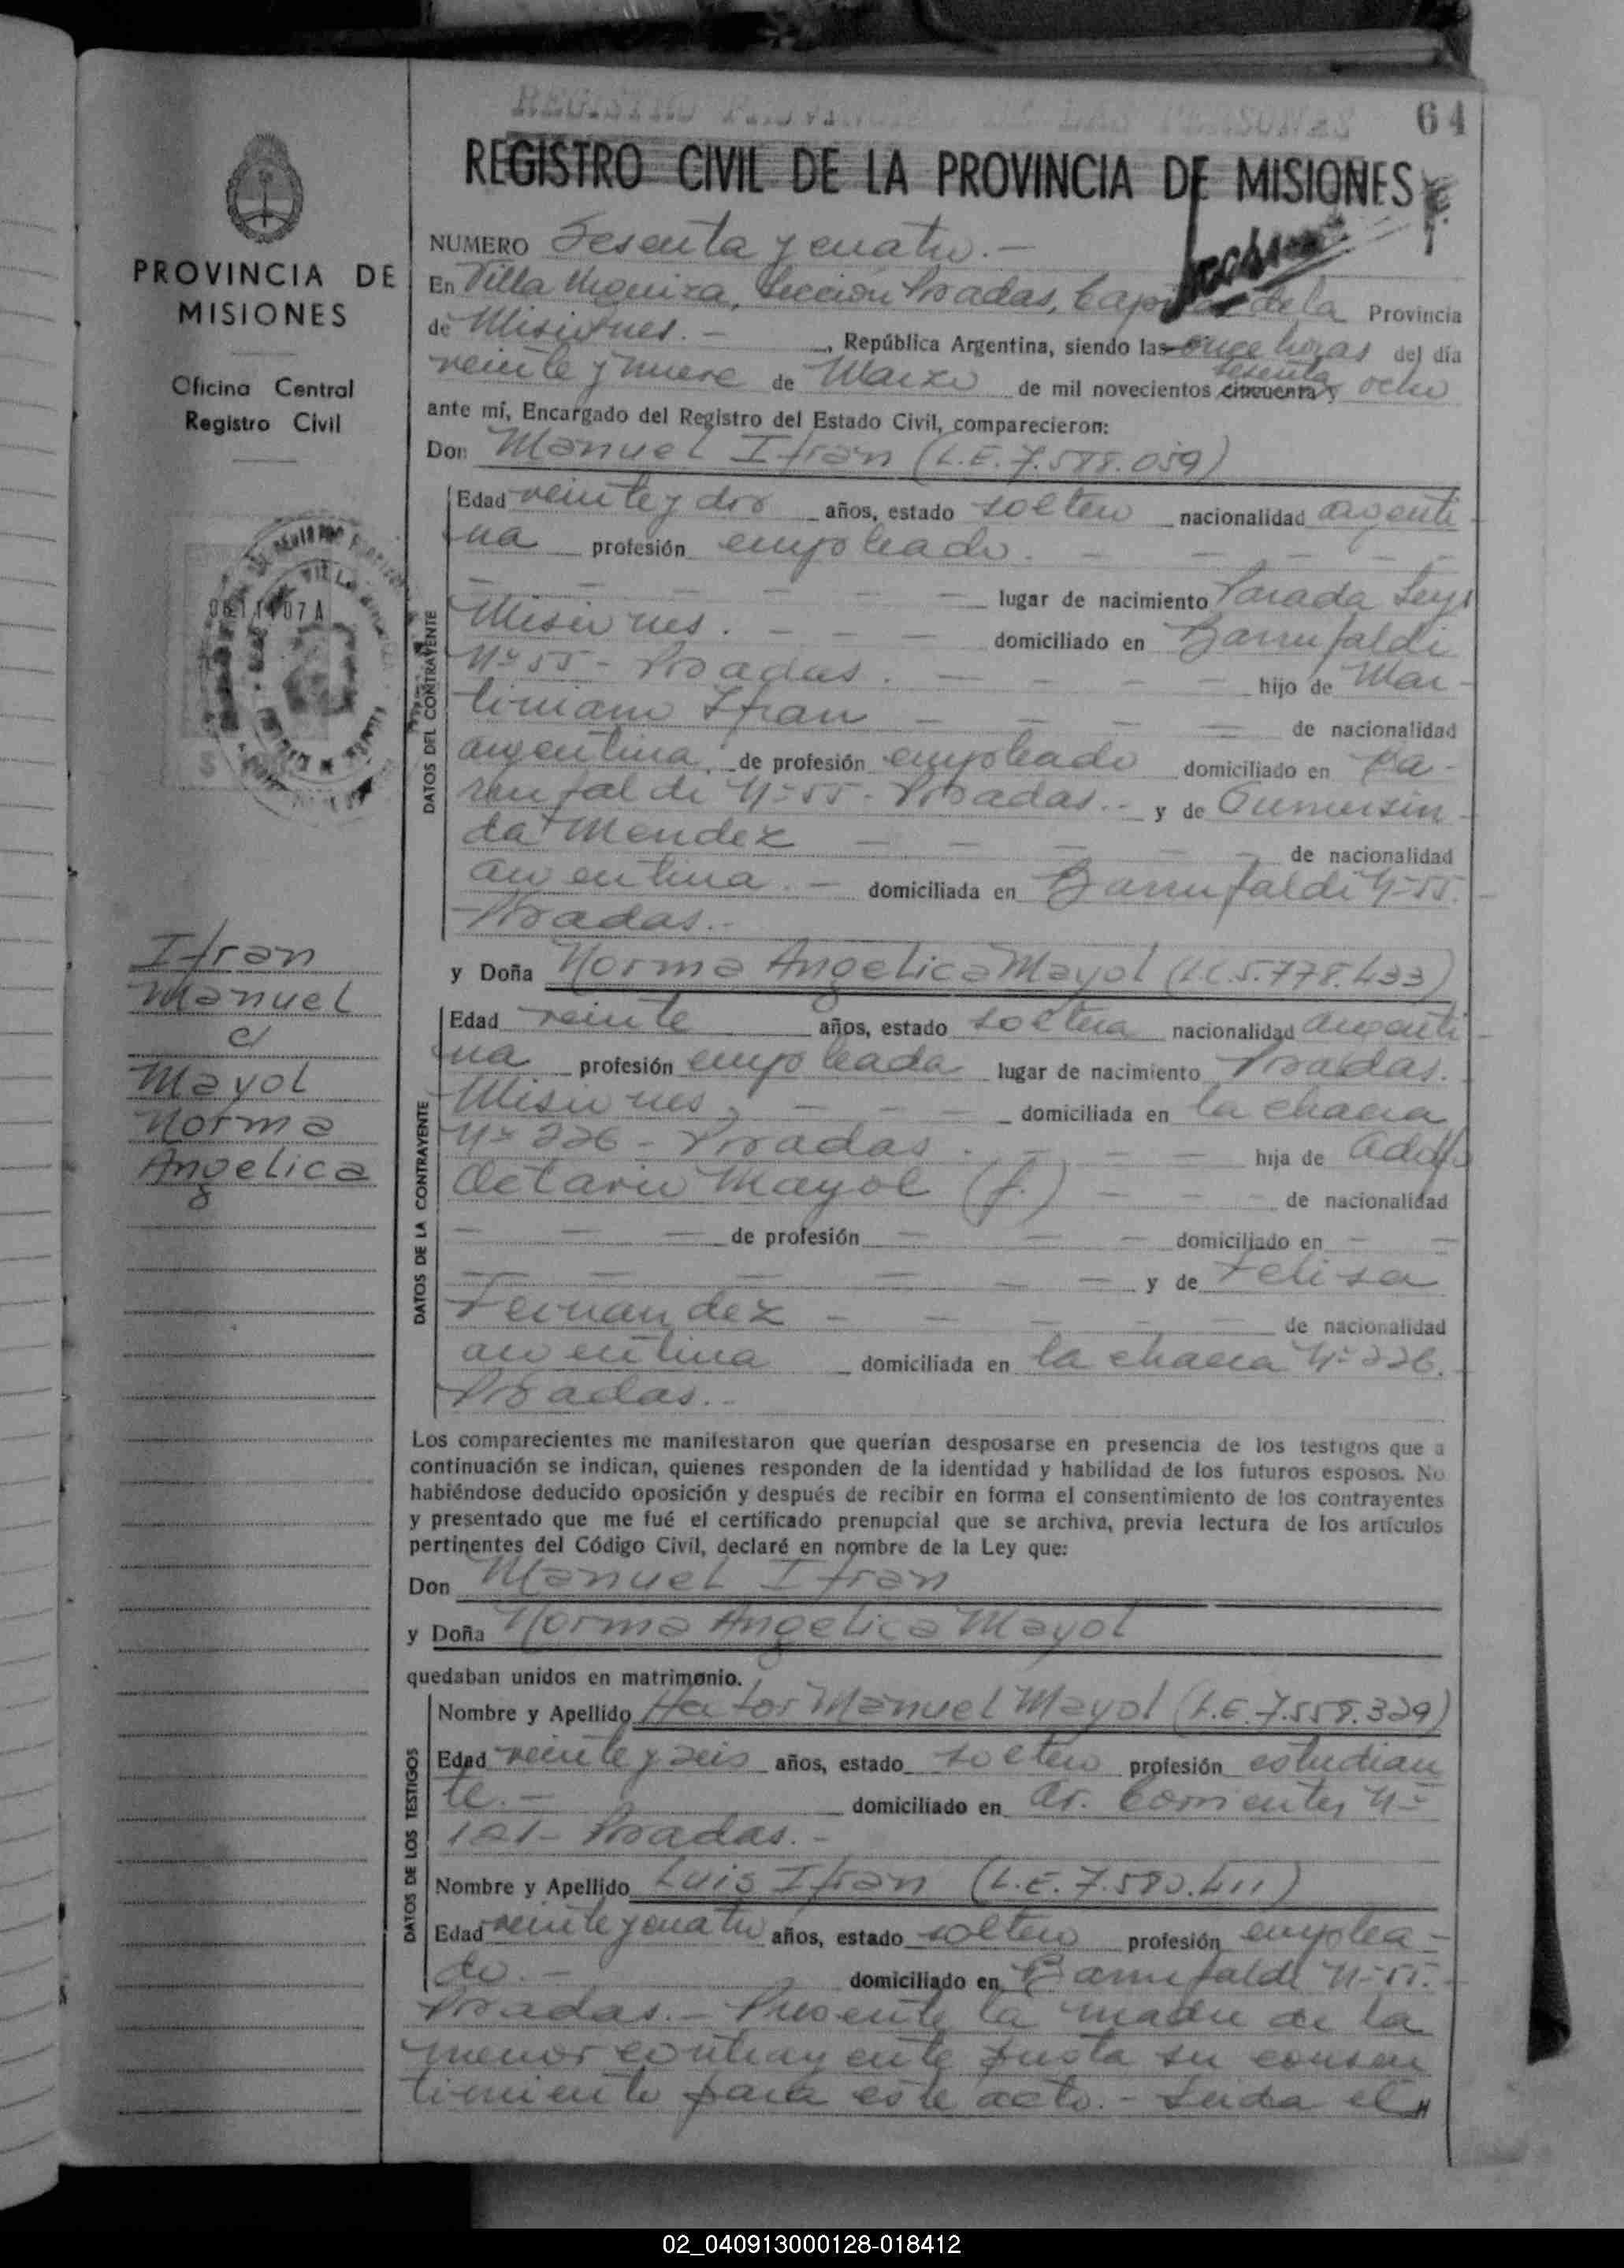 64
REGISTRO CIVIL DE LA PROVINCIA DE MISIONES
PROVINCIA DE
MISIONES
Oficina Central
Registro Civil
Ifran
Manuel
c/
Mayol
Norma
Angelica
NUMERO Sesenta y cuatro.-
En Villa Urquiza, Sección Posadas, Capital de la Provincia
de Misiones.- , República Argentina, siendo las once horas del día
veinte y nueve de Marzo de mil novecientos cincuenta sesenta y ocho
ante mí, Encargado del Registro del Estado Civil, comparecieron:
Don Manuel Ifran (L.E. 7.588.059)
DATOS DEL CONTRAYENTE
Edad veinte y dos años, estado soltero nacionalidad argenti
na profesión empleado. - - - - -
- - - - - lugar de nacimiento Parada Leys
Misiones. - - - domiciliado en Barrufaldi
Nº 55 - Posadas. - - - - hijo de Mar-
tiniano Ifran - - - - de nacionalidad
argentina, de profesión empleado domiciliado en Ba-
rrufaldi Nº 55 - Posadas.- y de Gumersin
da Mendez - - - - de nacionalidad
argentina. - domiciliada en Barrufaldi Nº 55.
Posadas.-
y Doña Norma Angelica Mayol (L.C. 5.778.433)
DATOS DE LA CONTRAYENTE
Edad veinte años, estado soltera nacionalidad argenti
na profesión empleada lugar de nacimiento Posadas.
Misiones, - - - domiciliada en la chacra
Nº 226 - Posadas. - - - hija de Adolfo
Octavio Mayol (f.) - - - de nacionalidad
- - - de profesión - - - domiciliado en - -
- - - - - - y de Felisa
Fernandez - - - - - de nacionalidad
argentina domiciliada en la chacra Nº 226.
Posadas.-
Los comparecientes me manifestaron que querían desposarse en presencia de los testigos que a
continuación se indican, quienes responden de la identidad y habilidad de los futuros esposos. No
habiéndose deducido oposición y después de recibir en forma el consentimiento de los contrayentes
y presentado que me fué el certificado prenupcial que se archiva, previa lectura de los artículos
pertinentes del Código Civil, declaré en nombre de la Ley que:
Don Manuel Ifran
y Doña Norma Angelica Mayol
quedaban unidos en matrimonio.
DATOS DE LOS TESTIGOS
Nombre y Apellido Hector Manuel Mayol (L.E. 7.558.329)
Edad veinte y seis años, estado soltero profesión estudian
te.- domiciliado en Av. Corrientes Nº
121 - Posadas.-
Nombre y Apellido Luis Ifran (L.E. 7.580.411)
Edad veinte y cuatro años, estado soltero profesión emplea-
do.- domiciliado en Barrufaldi Nº 55.-
Posadas.- Presente la madre de la
menor contrayente presta su consen
timiento para este acto.- Leida el
02_040913000128-018412